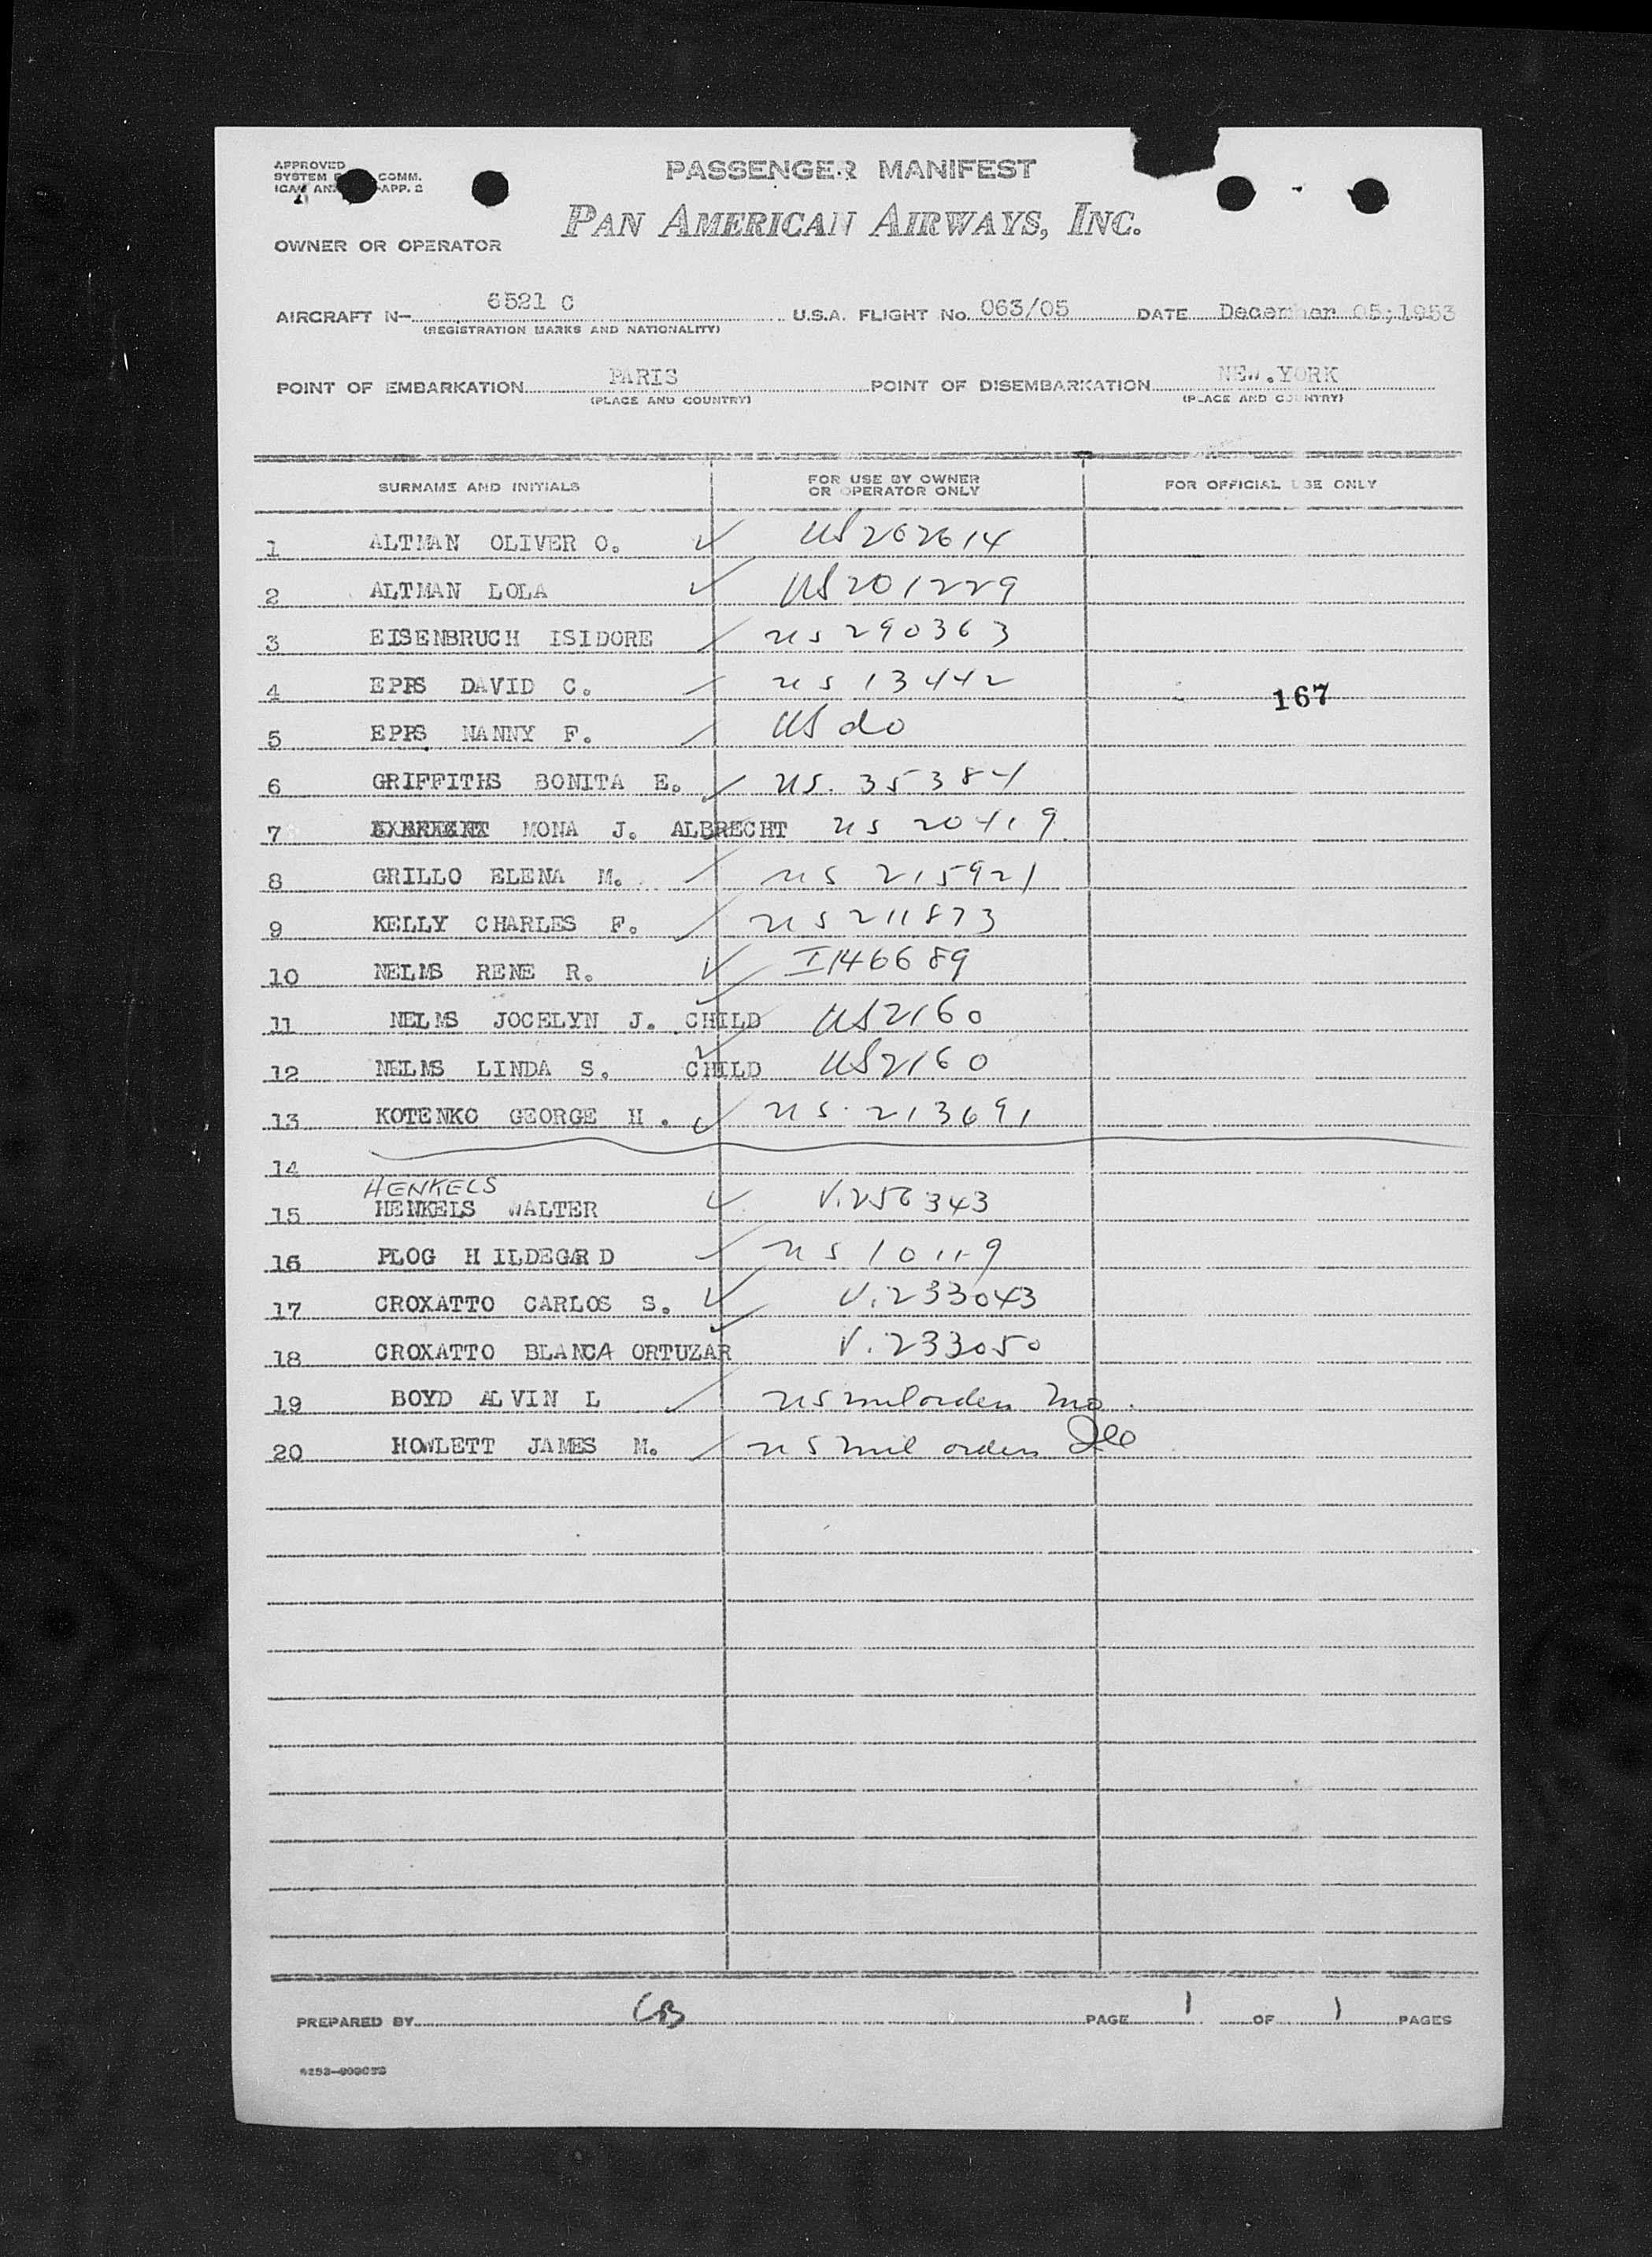 APPROVED
SYSTEM COMM.
APP. 2
PASSENGER MANIFEST
PAN AMERICAN AIRWAYS, INC.
OWNER OR OPERATOR
AIRCRAFT N- 6521 C U.S.A. FLIGHT No. 063/05 DATE December 05, 1953
(REGISTRATION MARKS AND NATIONALITY)
POINT OF EMBARKATION PARIS POINT OF DISEMBARKATION NEW YORK
(PLACE AND COUNTRY) (PLACE AND COUNTRY)
SURNAME AND INITIALS FOR USE BY OWNER OR OPERATOR ONLY FOR OFFICIAL USE ONLY
1 ALTMAN OLIVER O. ✓ US262614
2 ALTMAN LOLA ✓ US201229
3 EISENBRUCH ISIDORE / US 290363
4 EPPS DAVID C. / US 13442
167
5 EPPS NANNY F. / US do
6 GRIFFITHS BONITA E. / US. 35384
7 MONA J. ALBRECHT US 20419
8 GRILLO ELENA M. / US 215921
9 KELLY CHARLES F. / US 211873
10 NELMS RENE R. ✓ I146689
11 NELMS JOCELYN J. CHILD ✓ US2160
12 NELMS LINDA S. CHILD ✓ US2160
13 KOTENKO GEORGE H. ✓ US. 213691
14
HENKELS
15 HENKELS WALTER ✓ V.256343
16 PLOG HILDEGARD ✓ US 10119
17 CROXATTO CARLOS S. ✓ V.233043
18 CROXATTO BLANCA ORTUZAR ✓ V.233050
19 BOYD ALVIN L / US mil orders Mo.
20 HOWLETT JAMES M. / US mil orders Ill
PREPARED BY CB PAGE 1 OF 1 PAGES